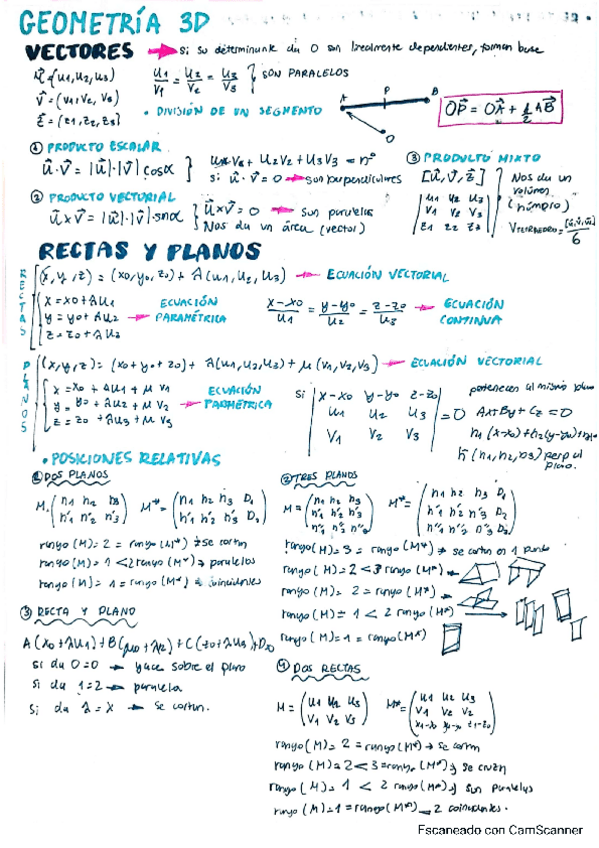 GEOMETRÍA 3D
VECTORES → Si su determinante da 0 son linealmente dependientes, forman base
ū = (u1, u2, u3)
v̄ = (v1, v2, v3)
z̄ = (z1, z2, z3)
u1/v1 = u2/v2 = u3/v3 } SON PARALELOS
• DIVISIÓN DE UN SEGMENTO
A P B O
OP = OA + 1/2 AB
① PRODUCTO ESCALAR
ū·v̄ = |ū|·|v̄| cosα } u1v1 + u2v2 + u3v3 = nº
si ū·v̄ = 0 → son perpendiculares
② PRODUCTO VECTORIAL
ūxv̄ = |ū|·|v̄|·senα } ūxv̄ = 0 → son paralelos
Nos da un área (vector)
③ PRODUCTO MIXTO
[ū, v̄, z̄]
|u1 u2 u3|
|v1 v2 v3|
|z1 z2 z3|
Nos da un
volúmen
(número)
VTETRAEDRO = [ū,v̄,z̄]/6
RECTAS Y PLANOS
RECTAS
(x, y, z) = (x0, y0, z0) + λ(u1, u2, u3) → ECUACIÓN VECTORIAL
x = x0 + λu1
y = y0 + λu2
z = z0 + λu3
→ ECUACIÓN PARAMÉTRICA
x-x0/u1 = y-y0/u2 = z-z0/u3 → ECUACIÓN CONTINUA
PLANOS
(x, y, z) = (x0 + y0 + z0) + λ(u1, u2, u3) + μ(v1, v2, v3) → ECUACIÓN VECTORIAL
x = x0 + λu1 + μ v1
y = y0 + λu2 + μ v2
z = z0 + λu3 + μ v3
→ ECUACIÓN PARMÉTRICA
Si
|x-x0 y-y0 z-z0|
|u1 u2 u3| = 0
|v1 v2 v3|
pertenecen al mismo plano
Ax+By+Cz=0
n1(x-x0)+n2(y-y0)+
n̄(n1, n2, n3) perp al
plano.
• POSICIONES RELATIVAS
① DOS PLANOS
M = (n1 n2 n3) M* = (n1 n2 n3 D1)
(n'1 n'2 n'3) (n'1 n'2 n'3 D2)
rango (M) = 2 = rango (M*) → se cortan
rango (M) = 1 < 2 rango (M*) → paralelos
rango (M) = 1 = rango (M*) → coincidentes
② TRES PLANOS
M = (n1 n2 n3) M* = (n1 n2 n3 D1)
(n'1 n'2 n'3) (n'1 n'2 n'3 D2)
(n''1 n''2 n''3) (n''1 n''2 n''3 D3)
rango (M) = 3 = rango (M*) → se cortan en 1 punto
rango (M) = 2 < 3 rango (M*) →
rango (M) = 2 = rango (M*) →
rango (M) = 1 < 2 rango (M*) →
rango (M) = 1 = rango (M*)
③ RECTA Y PLANO
A(x0+λu1) + B(y0+λu2) + C(z0+λu3) + D=0
Si da 0=0 → yace sobre el plano
Si da 1=2 → paralela
Si da λ = x → se cortan.
④ DOS RECTAS
M = (u1 u2 u3) M* = (u1 u2 u3)
(v1 v2 v3) (v1 v2 v2)
(x1-x0 y1-y0 z1-z0)
rango (M) = 2 = rango (M*) → se cortan
rango (M) = 2 < 3 = rango (M*) → se cruzan
rango (M) = 1 < 2 rango (M*) → son paralelas
rango (M) = 1 = rango (M*) → coincidentes.
Escaneado con CamScanner